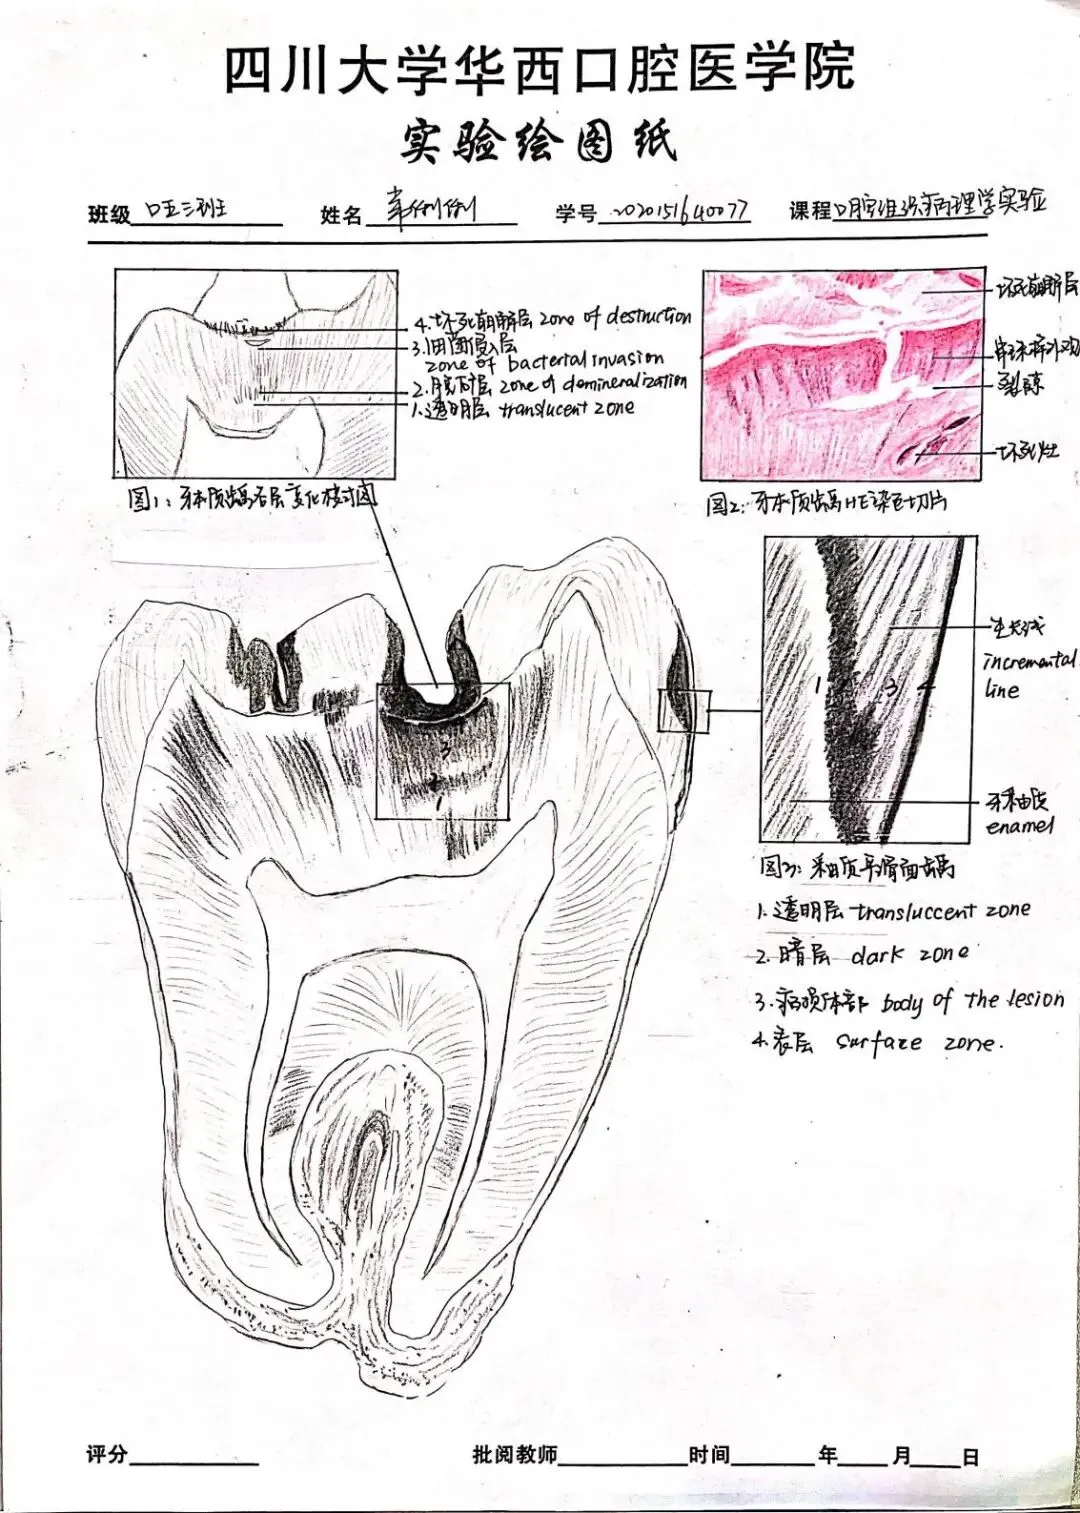 四川大学华西口腔医学院
实验绘图纸
班级 口五三班 姓名 学号 2020151640077 课程 口腔组织病理学实验
4.坏死崩解层 zone of destruction
3.细菌侵入层
zone of bacterial invasion
2.脱矿层 zone of demineralization
1.透明层 translucent zone
图1：牙本质龋各层变化模式图
坏死崩解层
串珠样外观
裂隙
坏死灶
图2：牙本质龋HE染色切片
生长线
incremental
line
1 2 3 4
牙釉质
enamel
图3：釉质平滑面龋
1.透明层 transluccent zone
2.暗层 dark zone
3.病损体部 body of the lesion
4.表层 surface zone.
3
2
1
评分 批阅教师 时间 年 月 日